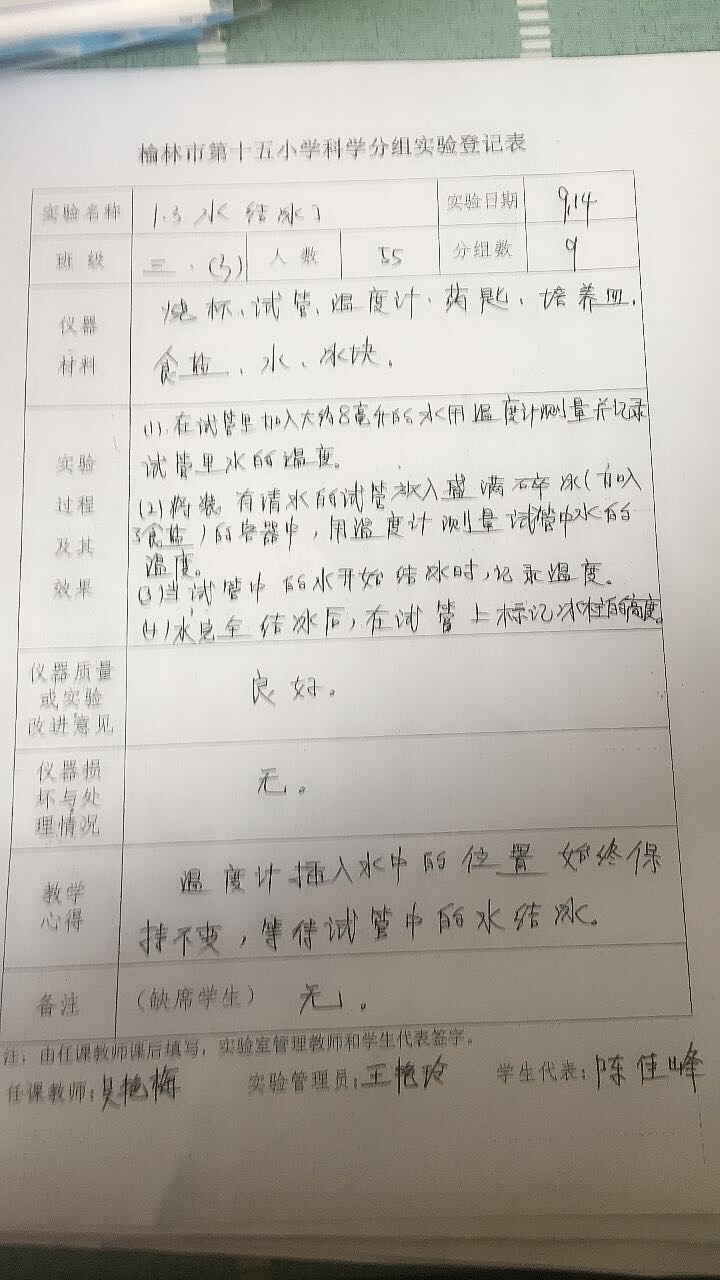 榆林市第十五小学科学分组实验登记表
实验名称 1.3 水结冰了 实验日期 9.14
班级 三.(3) 人数 55 分组数 9
仪器材料 烧杯、试管、温度计、药匙、培养皿、
食盐、水、冰块。
实验过程及其效果 (1).在试管里加入大约8毫升的水用温度计测量并记录
试管里水的温度。
(2)将装有清水的试管放入盛满碎冰(加入
了食盐)的容器中,用温度计测量试管中水的
温度。
(3)当试管中的水开始结冰时,记录温度。
(4)水完全结冰后,在试管上标记冰柱的高度。
仪器质量或实验改进意见 良好。
仪器损坏与处理情况 无。
教学心得 温度计插入水中的位置始终保
持不变,等待试管中的水结冰。
备注 (缺席学生) 无。
注:由任课教师课后填写,实验室管理教师和学生代表签字。
任课教师:吴艳梅 实验管理员:王艳玲 学生代表:陈佳峰